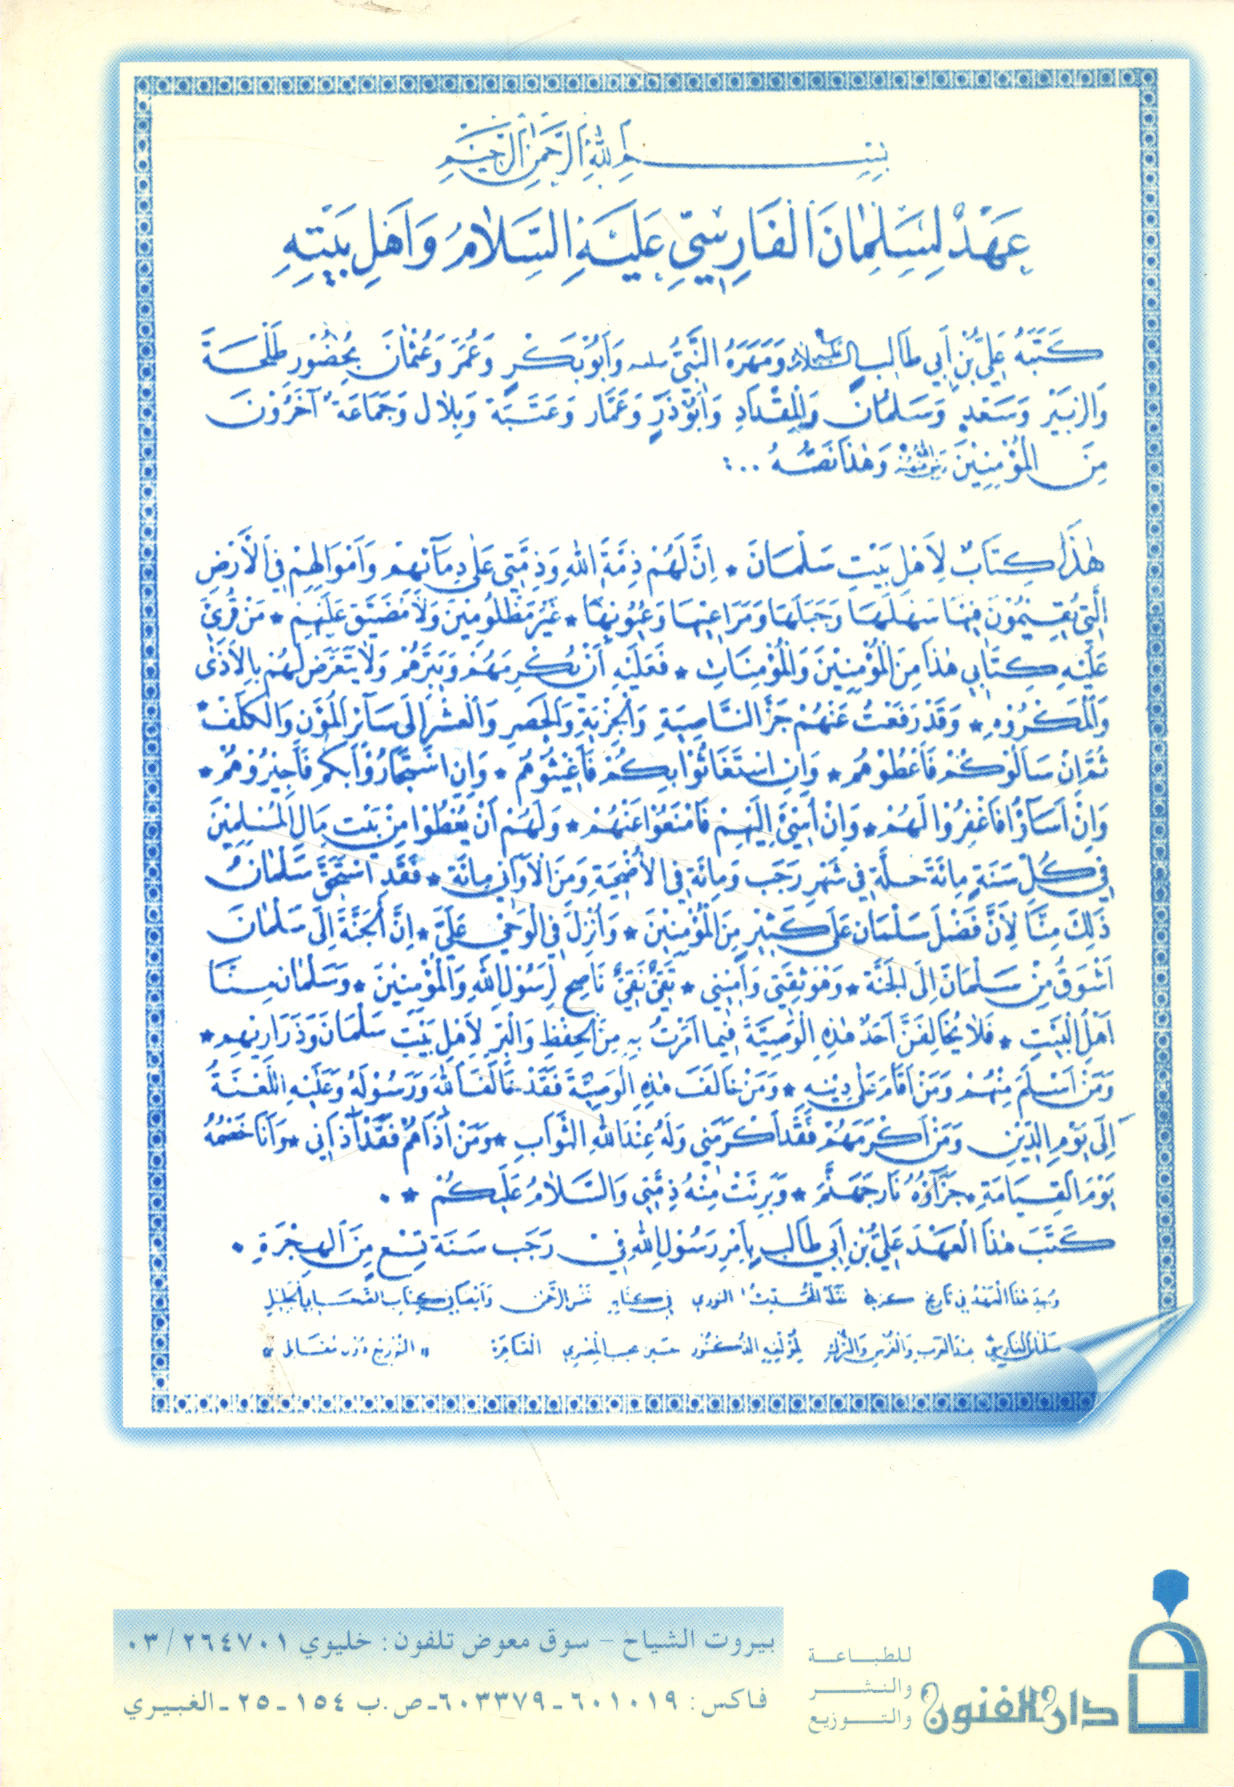 بِسْمِ اللهِ الرَّحْمٰنِ الرَّحِيْمِ
عَهْدٌ لِسَلْمَانَ الْفَارِسِيِّ عَلَيْهِ السَّلَامُ وَاَهْلِ بَيْتِهِ
كَتَبَهُ عَلِيُّ بْنُ اَبِي طَالِبٍ عليه السلام وَمَهَرَهُ النَّبِيُّ وَاَبُوْبَكْرٍ وَعُمَرَ وَعُثْمَانَ بِحُضُوْرِ طَلْحَةَ
وَالزُبَيْر وَسَعْدٍ وَسَلْمَانَ وَالْمِقْدَادِ وَاَبُوْذَرٍ وَعَمَّار وَعَتَبَة وَبِلَال وَجَمَاعَةٌ آخَرُوْنَ
مِنَ الْمُؤْمِنِيْنَ وَهٰذَا نَصُّهُ ..:
هٰذَا كِتَابٌ لِاَهْلِ بَيْتِ سَلْمَانَ * اِنَّ لَهُمْ ذِمَّةَ اللهِ وَذِمَّتِي عَلٰى دِمَآئِهِمْ وَاَمْوَالِهِمْ فِي الْاَرْضِ
الَّتِي يُقِيْمُوْنَ فِيْهَا سَهْلَهَا وَجَبَلَهَا وَمَرَاعِيْهَا وَعُيُوْنِهَا * غَيْرَ مَظْلُوْمِيْنَ وَلَا مُضَيَّقٍ عَلَيْهِمْ * مَنْ قُرِئَ
عَلَيْهِ كِتَابِي هٰذَا مِنَ الْمُؤْمِنِيْنَ وَالْمُؤْمِنَاتِ * فَعَلَيْهِ أَنْ يُكْرِمَهُمْ وَيَبَرَّهُمْ وَلَا يَتَعَرَّضَ لَهُمْ بِالْاَذَى
وَالْمَكْرُوْهِ * وَقَدْ رَفَعْتُ عَنْهُمْ جَزَّ النَّاصِيَةِ وَالْجِزْيَةِ وَالْحَصْرِ وَالْعُشْرِ اِلَى سَآئِرِ الْمُؤَنِ وَالْكُلَفْ *
ثُمَّ اِنْ سَاَلُوْكُمْ فَاَعْطُوْهُمْ * وَاِنِ اسْتَغَاثُوْا بِكُمْ فَاَغِيْثُوْهُمْ * وَاِنِ اسْتَجَارُوْا بِكُمْ فَاَجِيْرُوْهُمْ *
وَاِنْ اَسَآؤُا فَاغْفِرُوْا لَهُمْ * وَاِنْ اُسِيْئَ اِلَيْهِمْ فَامْنَعُوْا عَنْهُمْ * وَلَهُمْ اَنْ يُعْطُوْا مِنْ بَيْتِ مَالِ الْمُسْلِمِيْنَ
فِي كُلِّ سَنَةٍ مِائَةَ حُلَّةٍ فِي شَهْرِ رَجَب وَمِائَةٍ فِي الْاُضْحِيَةِ وَمِنَ الْاَوَانِي مِائَة * فَقَدِ اسْتَحَقَّ سَلْمَانُ
ذٰلِكَ مِنَّا لِاَنَّ فَضْلَ سَلْمَانَ عَلَى كَثِيْرٍ مِنَ الْمُؤْمِنِيْنَ * وَاُنْزِلَ فِي الْوَحْيِ عَلَيَّ * اِنَّ الْجَنَّةَ اِلَى سَلْمَانَ
اَشْوَقُ مِنْ سَلْمَانَ اِلَى الْجَنَّةِ * وَهُوَ ثِقَتِي وَاَمِيْنِي * تَقِيٌّ نَقِيٌّ نَاصِحٌ لِرَسُوْلِ اللهِ وَالْمُؤْمِنِيْنَ * وَسَلْمَانُ مِنَّا
اَهْلَ الْبَيْتِ * فَلَا يُخَالِفَنَّ اَحَدٌ هٰذِهِ الْوَصِيَّةَ فِيْمَا اَمَرْتُ بِهِ مِنَ الْحِفْظِ وَالْبِرِّ لِاَهْلِ بَيْتِ سَلْمَانَ وَذَرَارِيْهِمْ *
وَمَنْ اَسْلَمَ مِنْهُمْ وَمَنْ اَقَامَ عَلَى دِيْنِهِ * وَمَنْ خَالَفَ هٰذِهِ الْوَصِيَّةَ فَقَدْ خَالَفَ اللهَ وَرَسُوْلَهُ وَعَلَيْهِ اللَّعْنَةُ
اِلَى يَوْمِ الدِّيْنِ وَمَنْ اَكْرَمَهُمْ فَقَدْ اَكْرَمَنِي وَلَهُ عِنْدَ اللهِ الثَّوَابِ * وَمَنْ آذَاهُمْ فَقَدْ آذَانِي * وَاَنَا خَصْمُهُ
يَوْمَ الْقِيَامَةِ * جَزَآؤُهُ نَارُ جَهَنَّمَ * وَبَرِئَتْ مِنْهُ ذِمَّتِي وَالسَّلَامُ عَلَيْكُمْ * .
كَتَبَ هٰذَا الْعَهْدَ عَلِيُّ بْنُ اَبِي طَالِبٍ بِاَمْرِ رَسُوْلِ اللهِ فِيْ رَجَب سَنَةَ تِسْعٍ مِنَ الْهِجْرَةِ .
وُجِدَ هٰذَا الْعَهْدُ فِي تَارِيخ نَقَلَهُ الْمُحَدِّثُ النوري فِي كتابه نَفَسُ الرَّحْمٰن
سَلْمَانُ الْفَارِسِيُّ عِنْدَ الْعَرَبِ وَالْفُرْسِ وَالتُّرْكِ لِمُؤَلِّفِهِ الدُّكْتُوْر حُسَيْن مُجِيب الْمِصْرِي القَاهِرَة
بيروت الشياح - سوق معوض تلفون: خليوي ٠٣/٢٦٤٧٠١
فاكس: ٦٠١٠١٩ - ٦٠٣٣٧٩ - ص.ب ١٥٤ - ٢٥ - الغبيري
للطباعة
والنشر
والتوزيع
دار الفنون